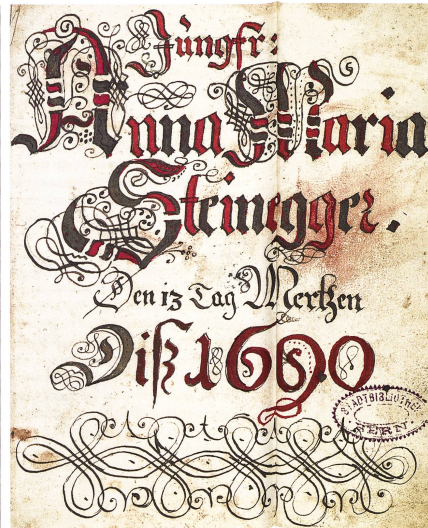 Jungfr:
Anna Maria
Steinegger.
Den 13 Tag Mertzen
Diß 1690
STADTBIBLIOTHEK
BERN.